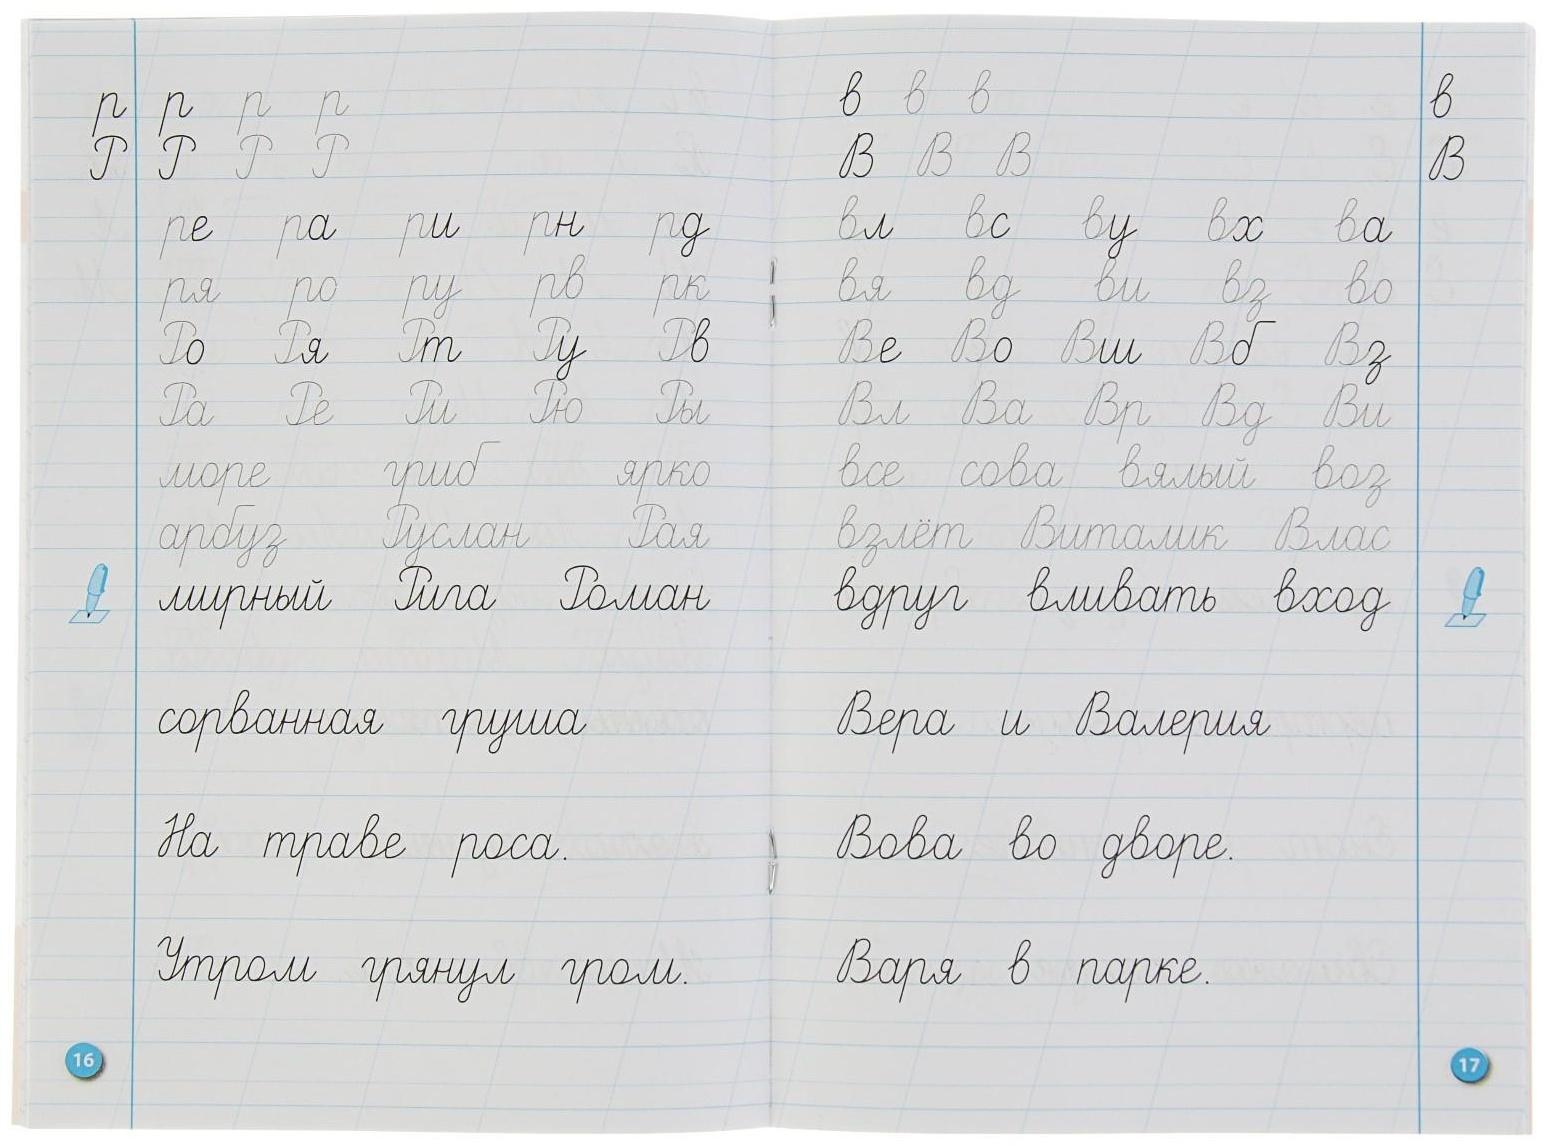 р р р р
Р Р Р Р
ре ра ри рн рд
ря ро ру рв рк
Ро Ря Рт Ру Рв
Ра Ре Ри Рю Ры
море гриб ярко
арбуз Руслан Рая
мирный Рига Роман
сорванная груша
На траве роса.
Утром грянул гром.
16
в в в в
В В В В
вл вс ву вх ва
вя вд ви вз во
Ве Во Вш Вб Вз
Вл Ва Вр Вд Ви
все сова вялый воз
взлёт Виталик Влас
вдруг вливать вход
Вера и Валерия
Вова во дворе.
Варя в парке.
17